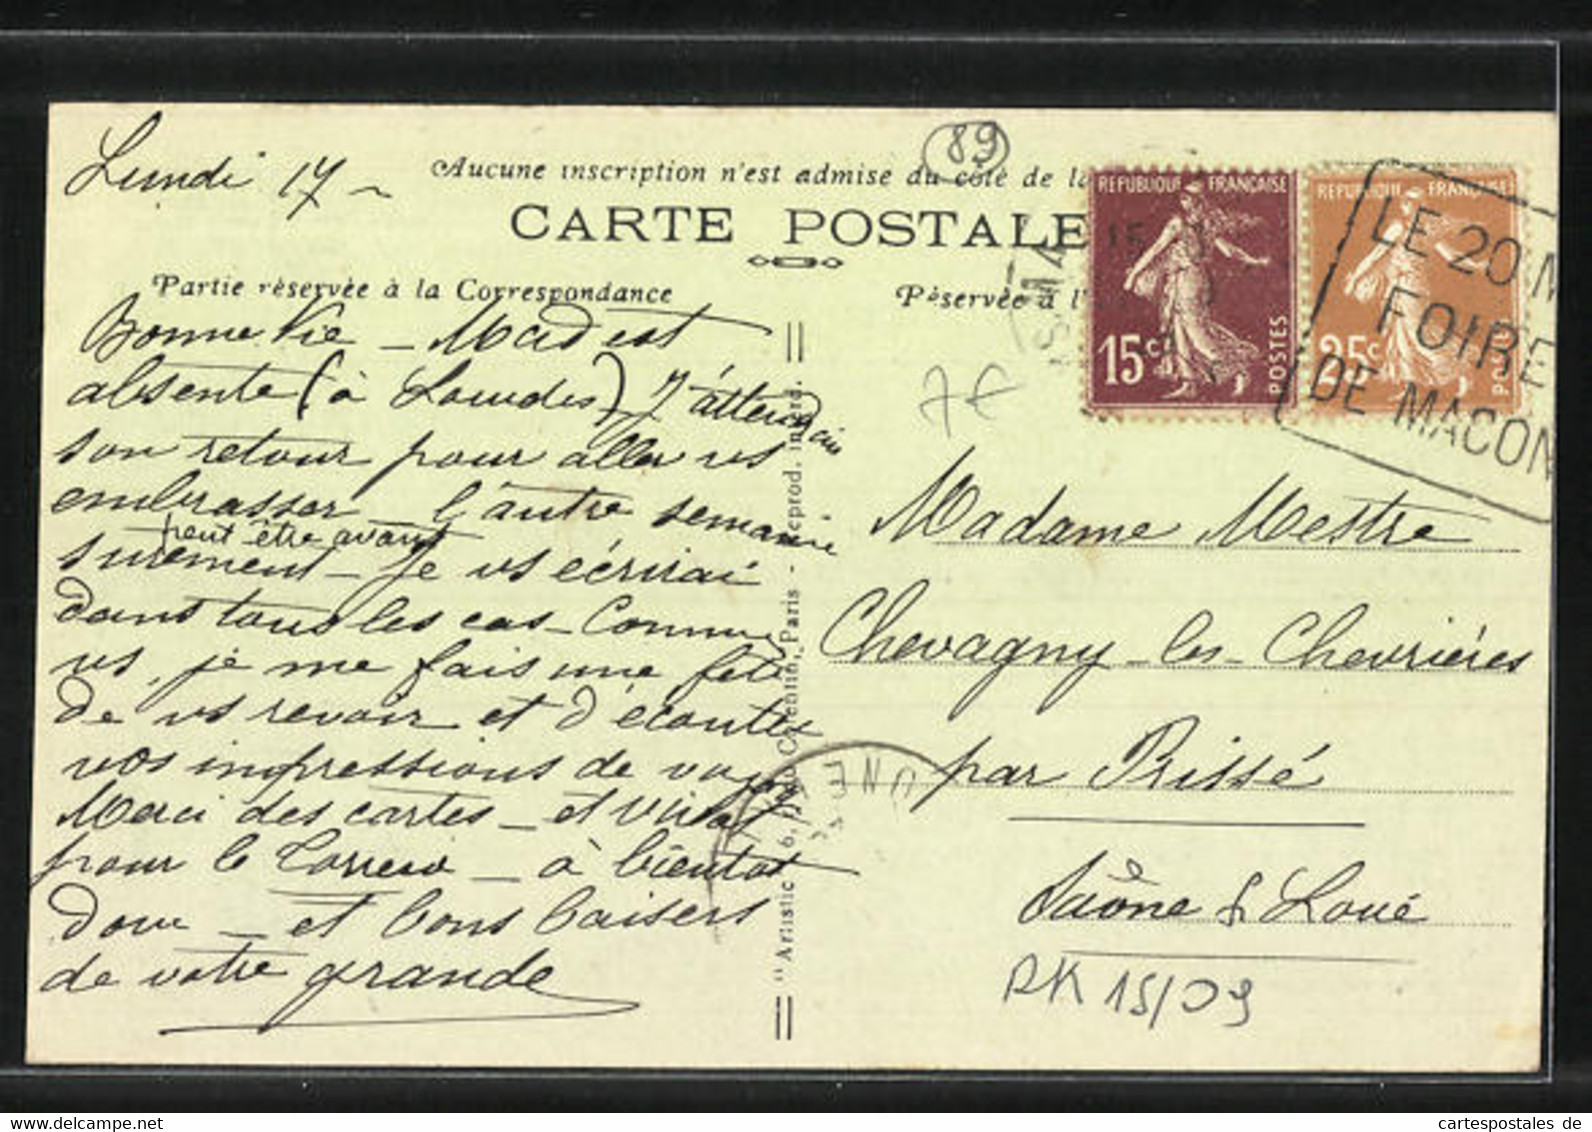 Lundi 17 ~
89
Aucune inscription n'est admise du côté de la
CARTE POSTALE
Partie réservée à la Correspondance
Réservée à l'
REPUBLIQUE FRANÇAISE
15c
POSTES
REPUBLIQUE FRANÇAISE
25c
POSTES
LE 20 M
FOIRE
DE MACON
Bonne Vie – Mad est
absente (à Lourdes) J'attendrai
son retour pour aller vs
embrasser l'autre semaine
peut être avant
surement – Je vs écrirai
dans tous les cas – Comme
vs, je me fais une fête
de vs revoir et d'écouter
vos impressions de
Merci des cartes – et
pour le – à bientot
donc – et bons baisers
de votre grande
"Artistic Paris - Reprod. interd.
7€
Madame Mestre
Chevagny-les-Chevrières
par Prissé
Saône & Loire
AK 15/09
cartespostales de